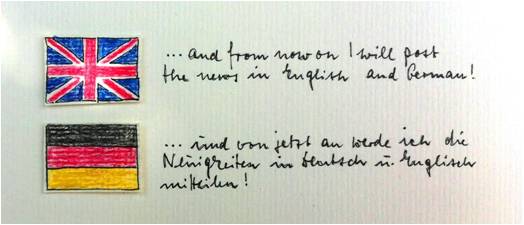 ... and from now on I will post
the news in English and German!
... und von jetzt an werde ich die
Neuigkeiten in Deutsch u. Englisch
mitteilen!